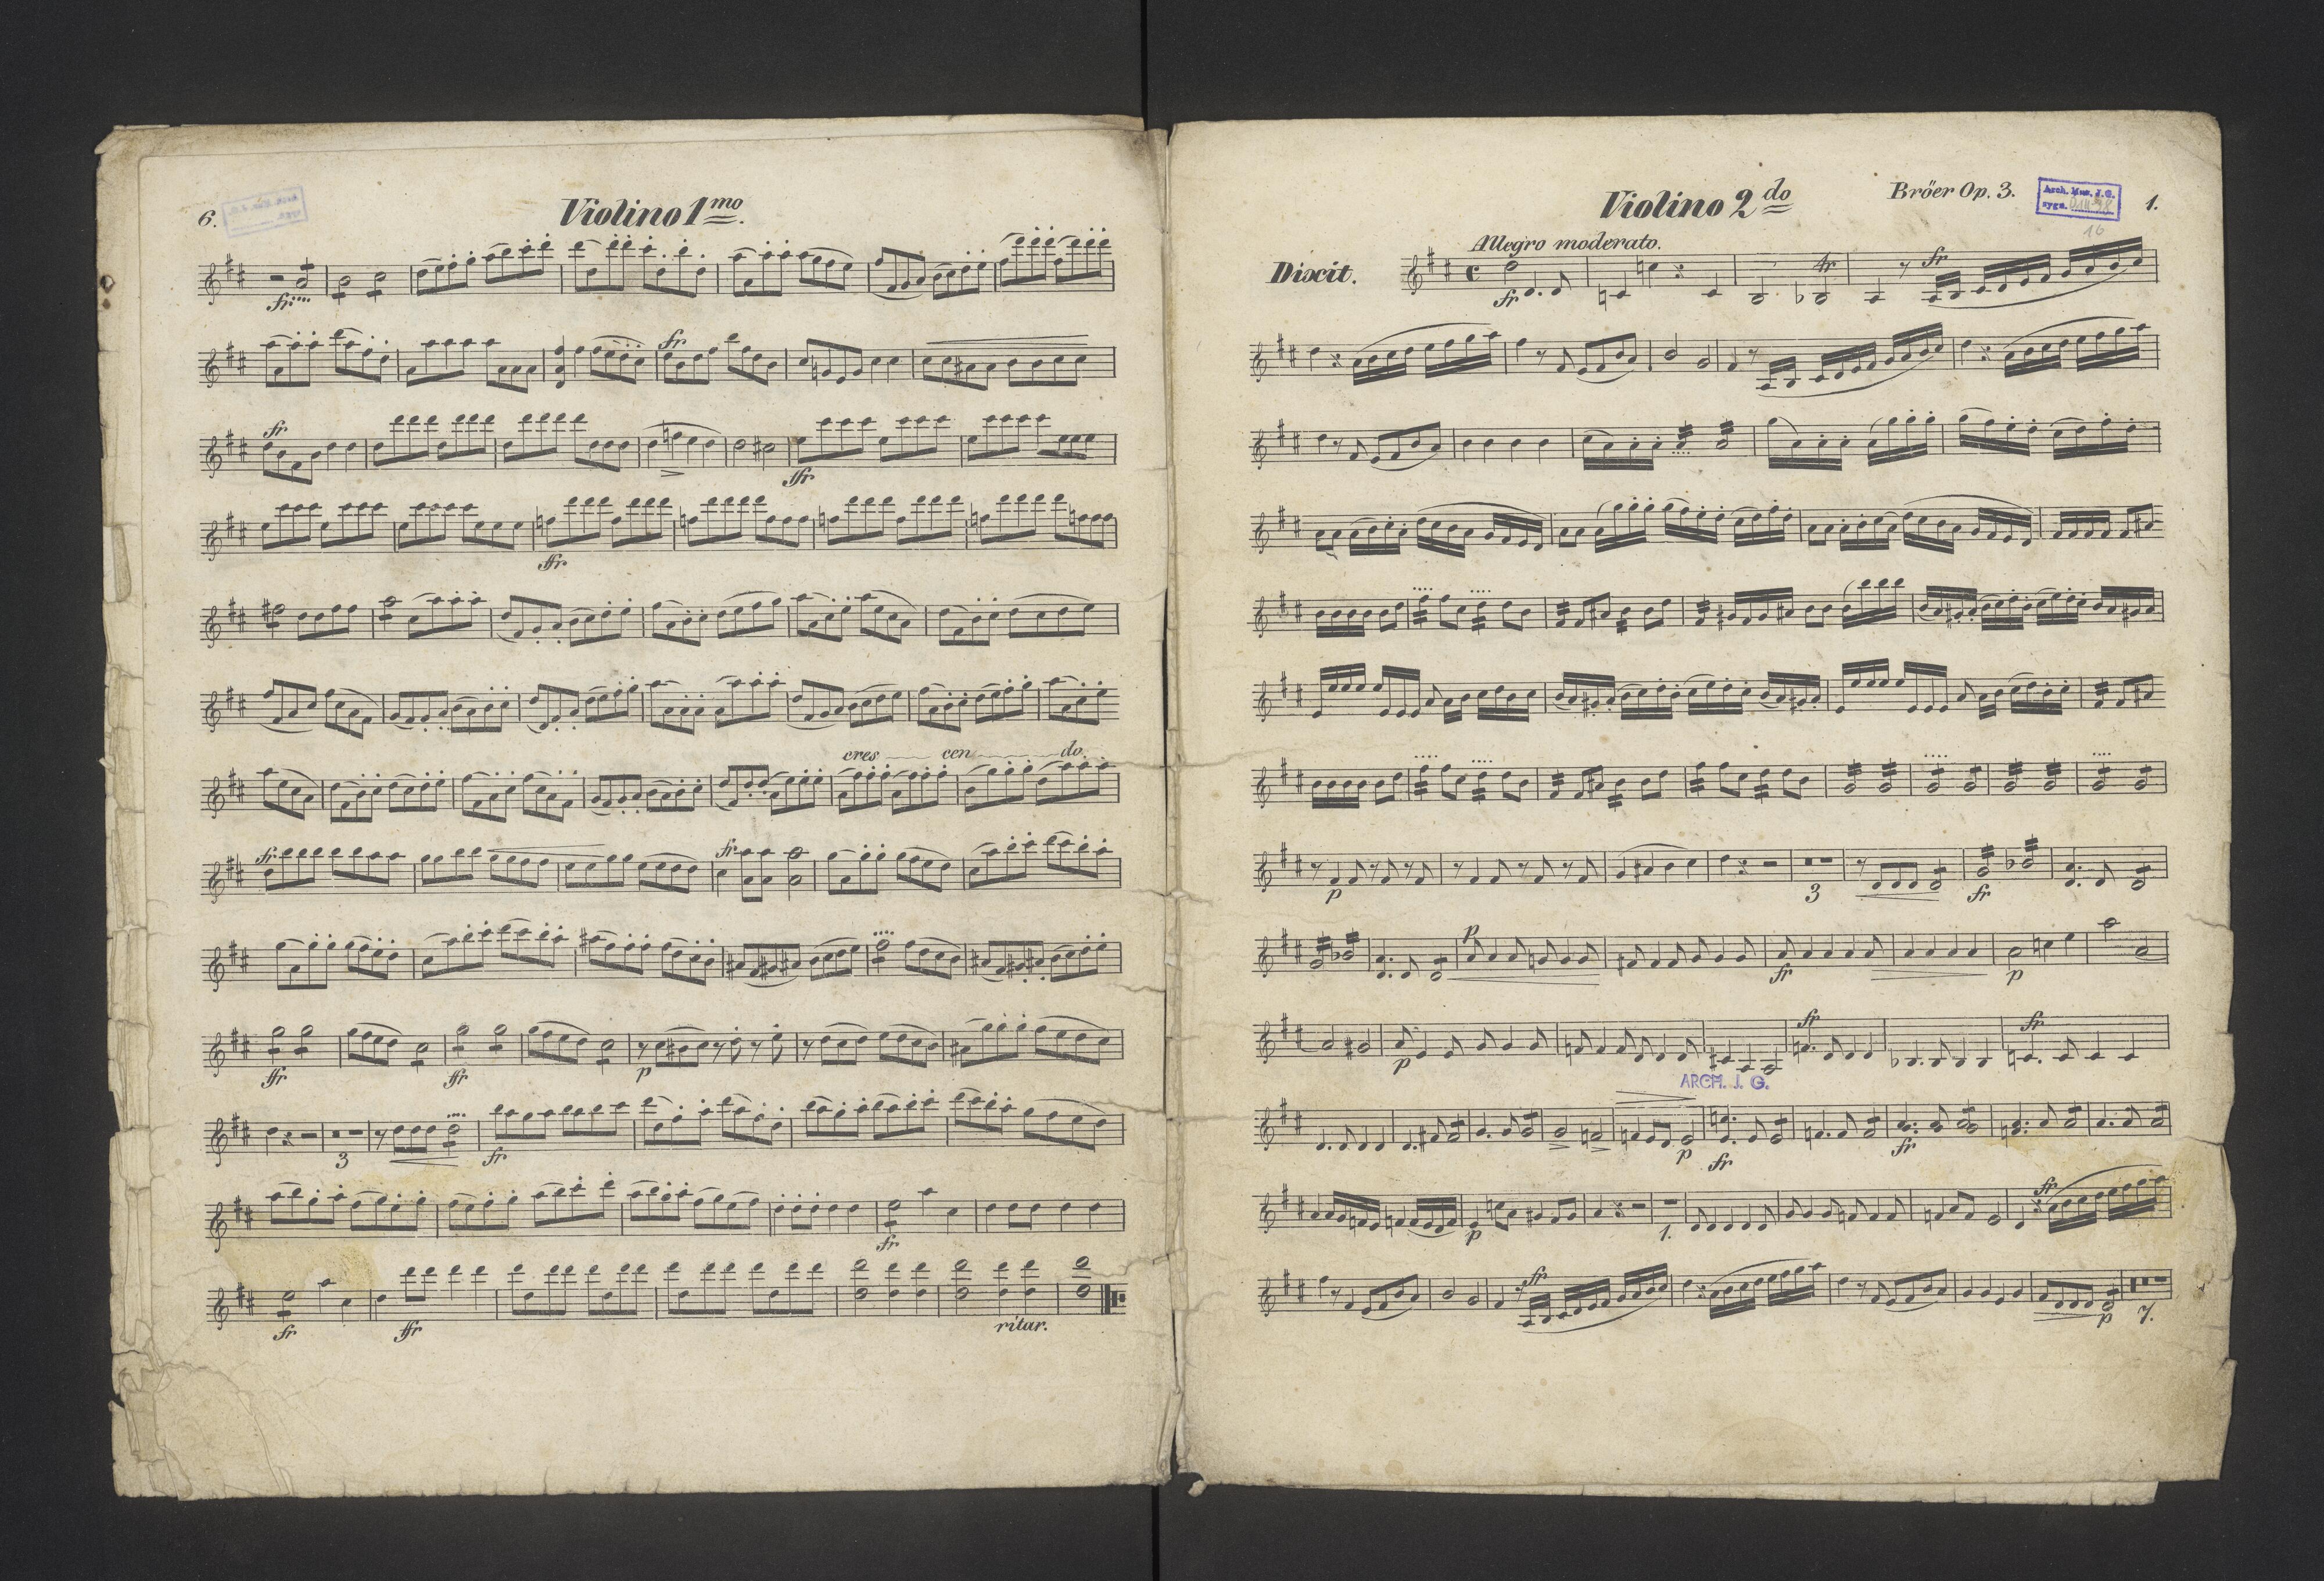 6.
Violino 1mo.
fr
fr
fr
ffr
ffr
cres cen do.
fr
fr
ffr
ffr
p
3
fr
fr
fr
ffr
ritar.
Violino 2do
Bröer Op. 3.
Arch. Mus. J.G.
sygn.
16
1.
Allegro moderato.
Dixit.
fr
fr
p
3
fr
p
fr
p
p
fr
fr
ARCH. J. G.
p
fr
fr
p
1.
fr
fr
p
7.